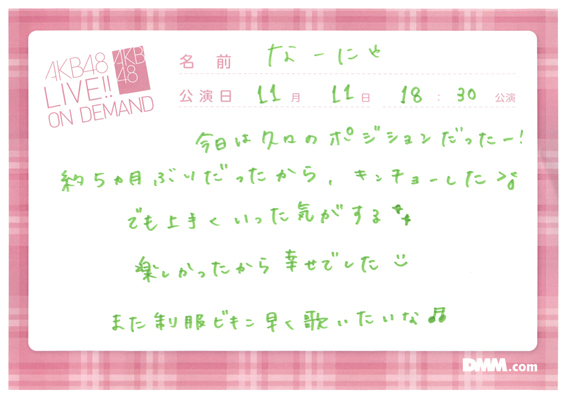 AKB48
LIVE!!
ON DEMAND
AKB
48
名 前 なーにゃ
公演日 11月 11日 18:30 公演
今日は久々のポジションだったー!
約5ヵ月ぶりだったから、キンチョーした
でも上手くいった気がする
楽しかったから幸せでした
また制服ビキニ早く歌いたいな♫
DMM.com